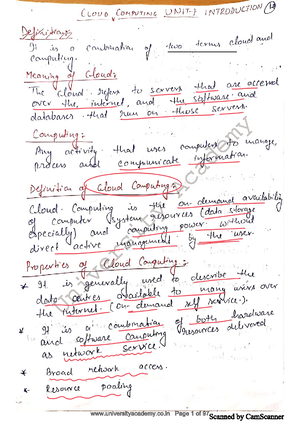 CLOUD COMPUTING UNIT-I INTRODUCTION
Definitions:
It is a combination of two terms cloud and
computing.
Meaning of Cloud:
The cloud refers to servers that are accessed
over the internet, and the software and
databases that run on those servers.
Computing:
Any activity that uses computers to manage,
process and communicate information.
Definition of Cloud Computing:
Cloud Computing is the on-demand availability
of computer system resources (data storage
especially) and computing power without
direct active management by the user.
Properties of Cloud Computing:
* It is generally used to describe the
data centres available to many users over
the internet. (On demand self service.)
* It is a combination of both hardware
and software computing resources delivered
as network service.
* Broad network access.
* Resource pooling
University Academy
www.universityacademy.co.in Page 1 of 97
Scanned by CamScanner